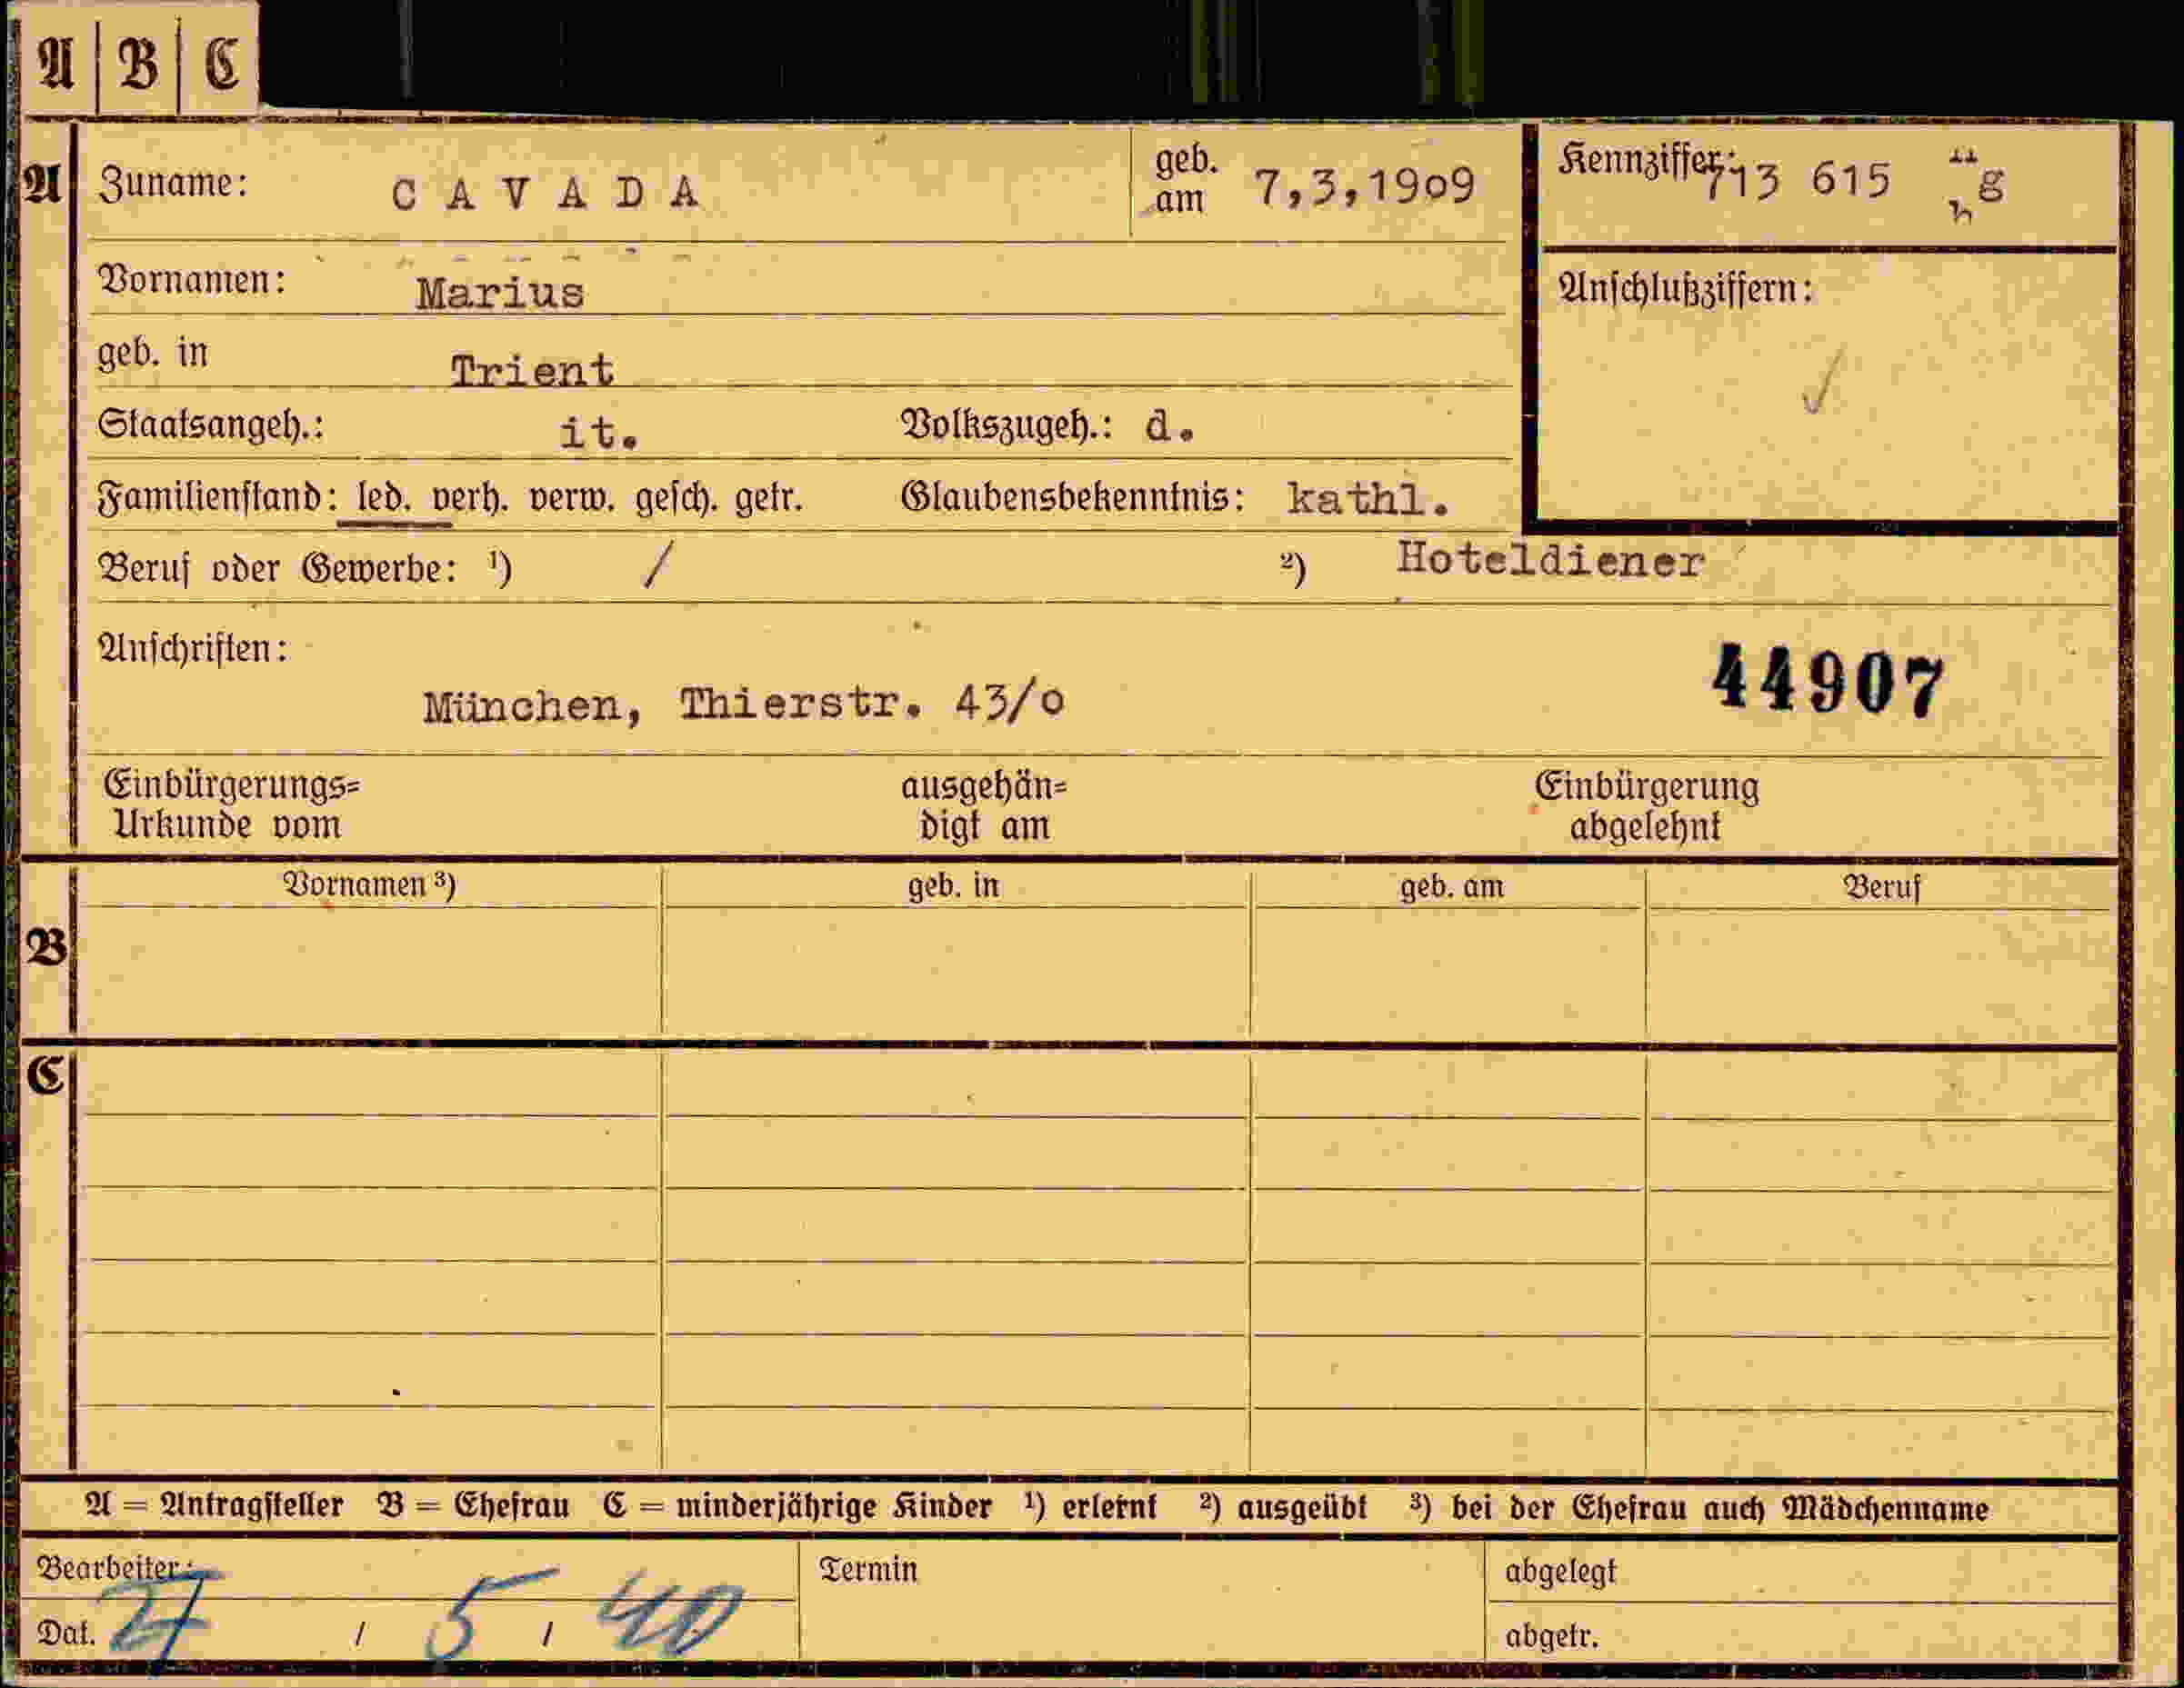 A | B | C
A Zuname: CAVADA geb. am 7,3,1909 Kennziffer: 713 615 g
Vornamen: Marius Anschlußziffern:
geb. in Trient
Staatsangeh.: it. Volkszugeh.: d.
Familienstand: led. verh. verw. gesch. getr. Glaubensbekenntnis: kathl.
Beruf oder Gewerbe: ¹) / ²) Hoteldiener
Anschriften: 44907
München, Thierstr. 43/o
Einbürgerungs= ausgehän= Einbürgerung
Urkunde vom digt am abgelehnt
Vornamen ³) geb. in geb. am Beruf
B
C
A = Antragsteller B = Ehefrau C = minderjährige Kinder ¹) erlernt ²) ausgeübt ³) bei der Ehefrau auch Mädchenname
Bearbeiter: Termin abgelegt
Dat. 27 / 5 / 40 abgetr.